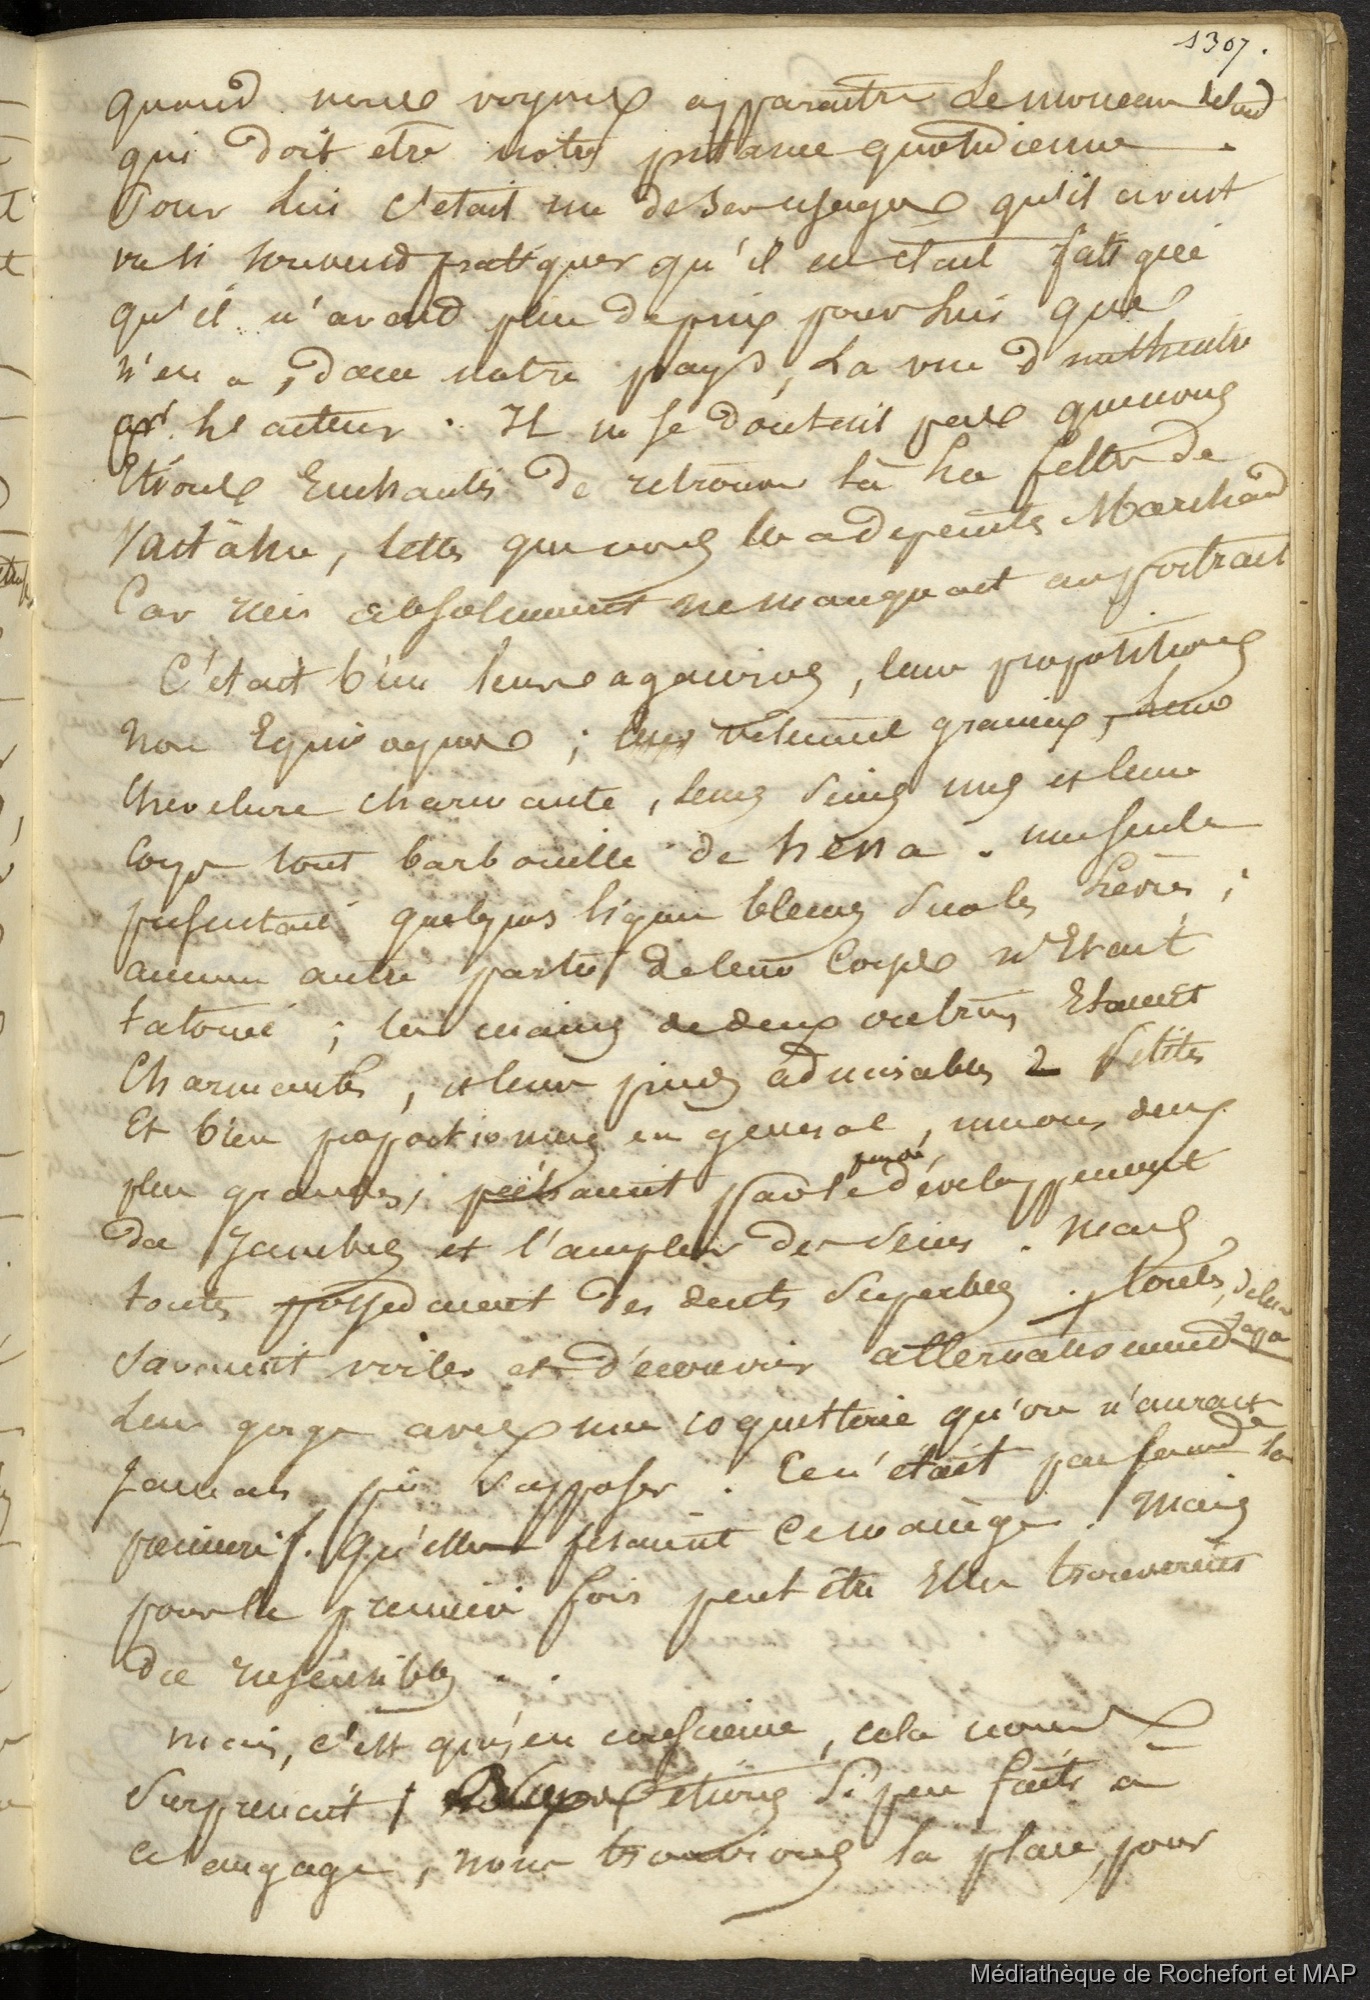 1307.
quand nous voyons apparaitre le morceau de lard
qui doit etre notre pitance quotidienne.
Pour lui c'etait un de ses usages qu'il avait
vu si souvend pratiquer qu'il en etait fatigué
qu'il n'avaid plus de prix pour lui que
n'en a, dans notre pays, la vue d'un theatre
les acteurs. Il ne se doutait pas que nous
Etions Enchantés de retrouver là les filles de
Vaitahu, telles que nous les a depeintes Marchand
Car rien absolument ne manquait au portrait
C'était bien leurs agaceries, leurs propositions
non Equivoques; leurs vetements gracieux, leur
Chevelure charmante, leurs seins nus et leur
Corps tout barbouillé de hena. une seule
presentait quelques lignes bleues sur les lèvres;
aucune autre partie de leur Corps n'Etait
tatouée; les mains de deux entr'elles Etaient
Charmantes, et leurs pieds admirables. Petites
Et bien proportionnées en general, deux
plus grandes, péchaient par le peu de développement
des Jambes et l'ampleur des seins. mais
toutes possedaient des dents superbes. toutes, de leur
tapa
savaient voiler et découvrir alternativement
leur gorge avec une coquetterie qu'on n'aurait
Jamais pû supposer. Ce n'était pas sans doute la
premiere f. qu'elles fesaient ce manège. Mais
pour la premiere fois peut être Elles trouverent
des insensibles..
mais, c'est qu'en conscience, cela nous
surprenait; etions si peu faits a
ce langage, nous trouvions la place, pour
Médiathèque de Rochefort et MAP